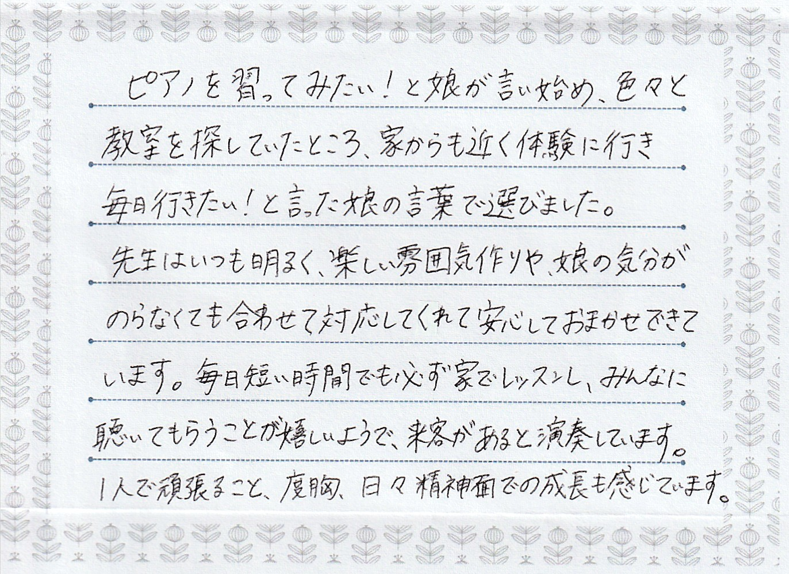 ピアノを習ってみたい！と娘が言い始め、色々と
教室を探していたところ、家からも近く体験に行き
毎日行きたい！と言った娘の言葉で選びました。
先生はいつも明るく、楽しい雰囲気作りや、娘の気分が
のらなくても合わせて対応してくれて安心しておまかせできて
います。毎日短い時間でも必ず家でレッスンし、みんなに
聴いてもらうことが嬉しいようで、来客があると演奏しています。
1人で頑張ること、度胸、日々精神面での成長も感じています。